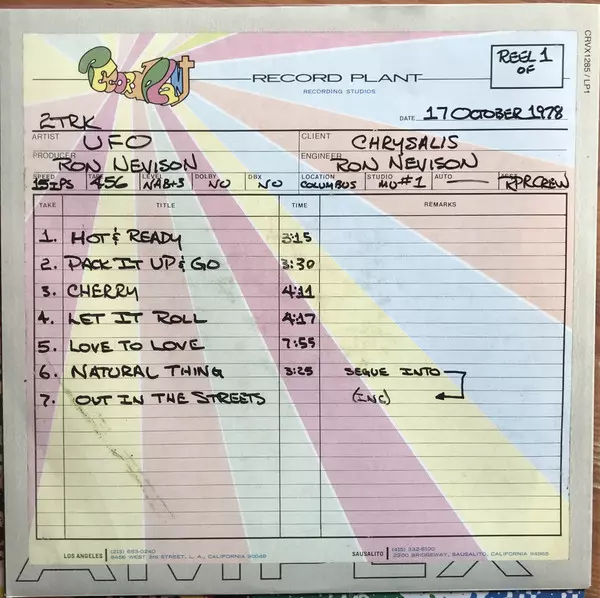 CRVX1285/LP1
REEL 1
OF
Record Plant
RECORD PLANT
RECORDING STUDIOS
2TRK
DATE 17 OCTOBER 1978
ARTIST UFO CLIENT CHRYSALIS
PRODUCER RON NEVISON ENGINEER RON NEVISON
SPEED TAPE LEVEL DOLBY DBX LOCATION STUDIO AUTO
15IPS 456 NAB+3 NO NO COLUMBUS MU#1 — RPRCREW
TAKE TITLE TIME REMARKS
1. HOT & READY 3:15
2. PACK IT UP & GO 3:30
3. CHERRY 4:11
4. LET IT ROLL 4:17
5. LOVE TO LOVE 7:55
6. NATURAL THING 3:25 SEGUE INTO
7. OUT IN THE STREETS (INC)
LOS ANGELES (213) 653-0240 SAUSALITO (415) 332-6100
8456 WEST 3RD STREET, L. A., CALIFORNIA 90048 2200 BRIDGEWAY, SAUSALITO, CALIFORNIA 94965
AMPEX